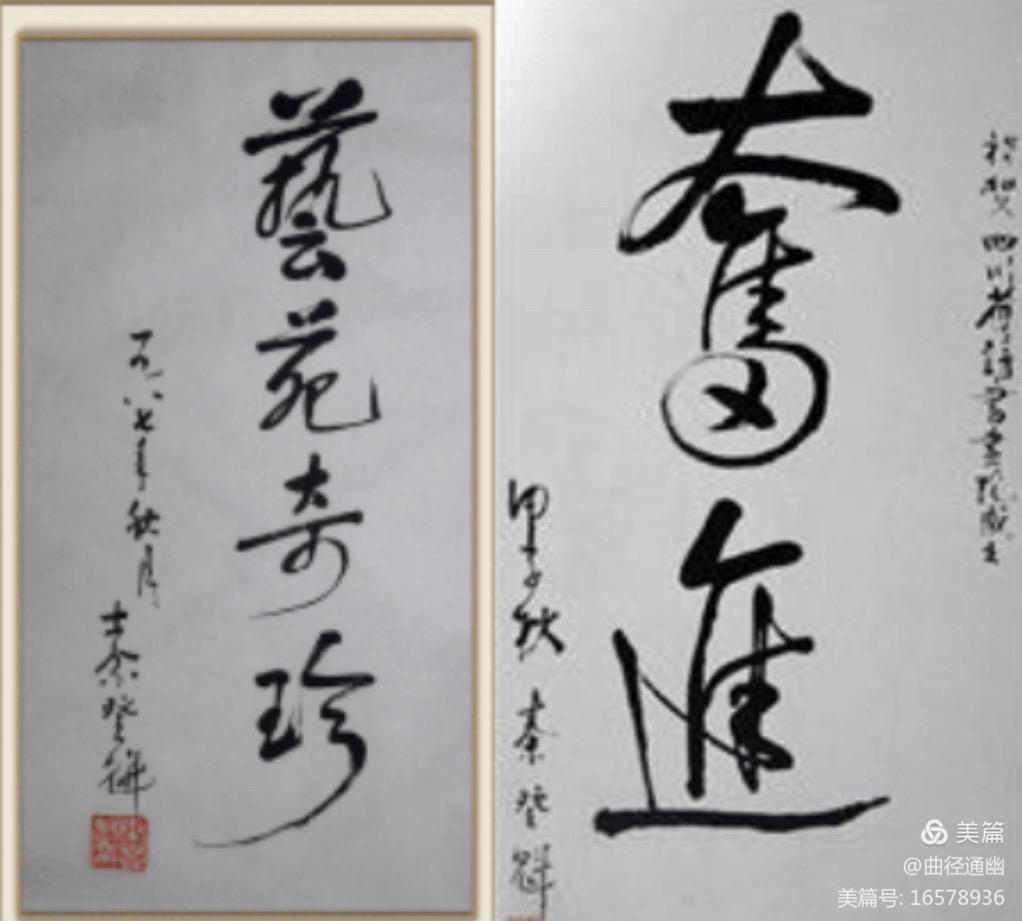 藝苑奇珍
一九八七年秋月
秦登魁
祝贺四川
書画院成立
奮進
甲子秋
秦登魁
美篇
@曲径通幽
美篇号: 16578936